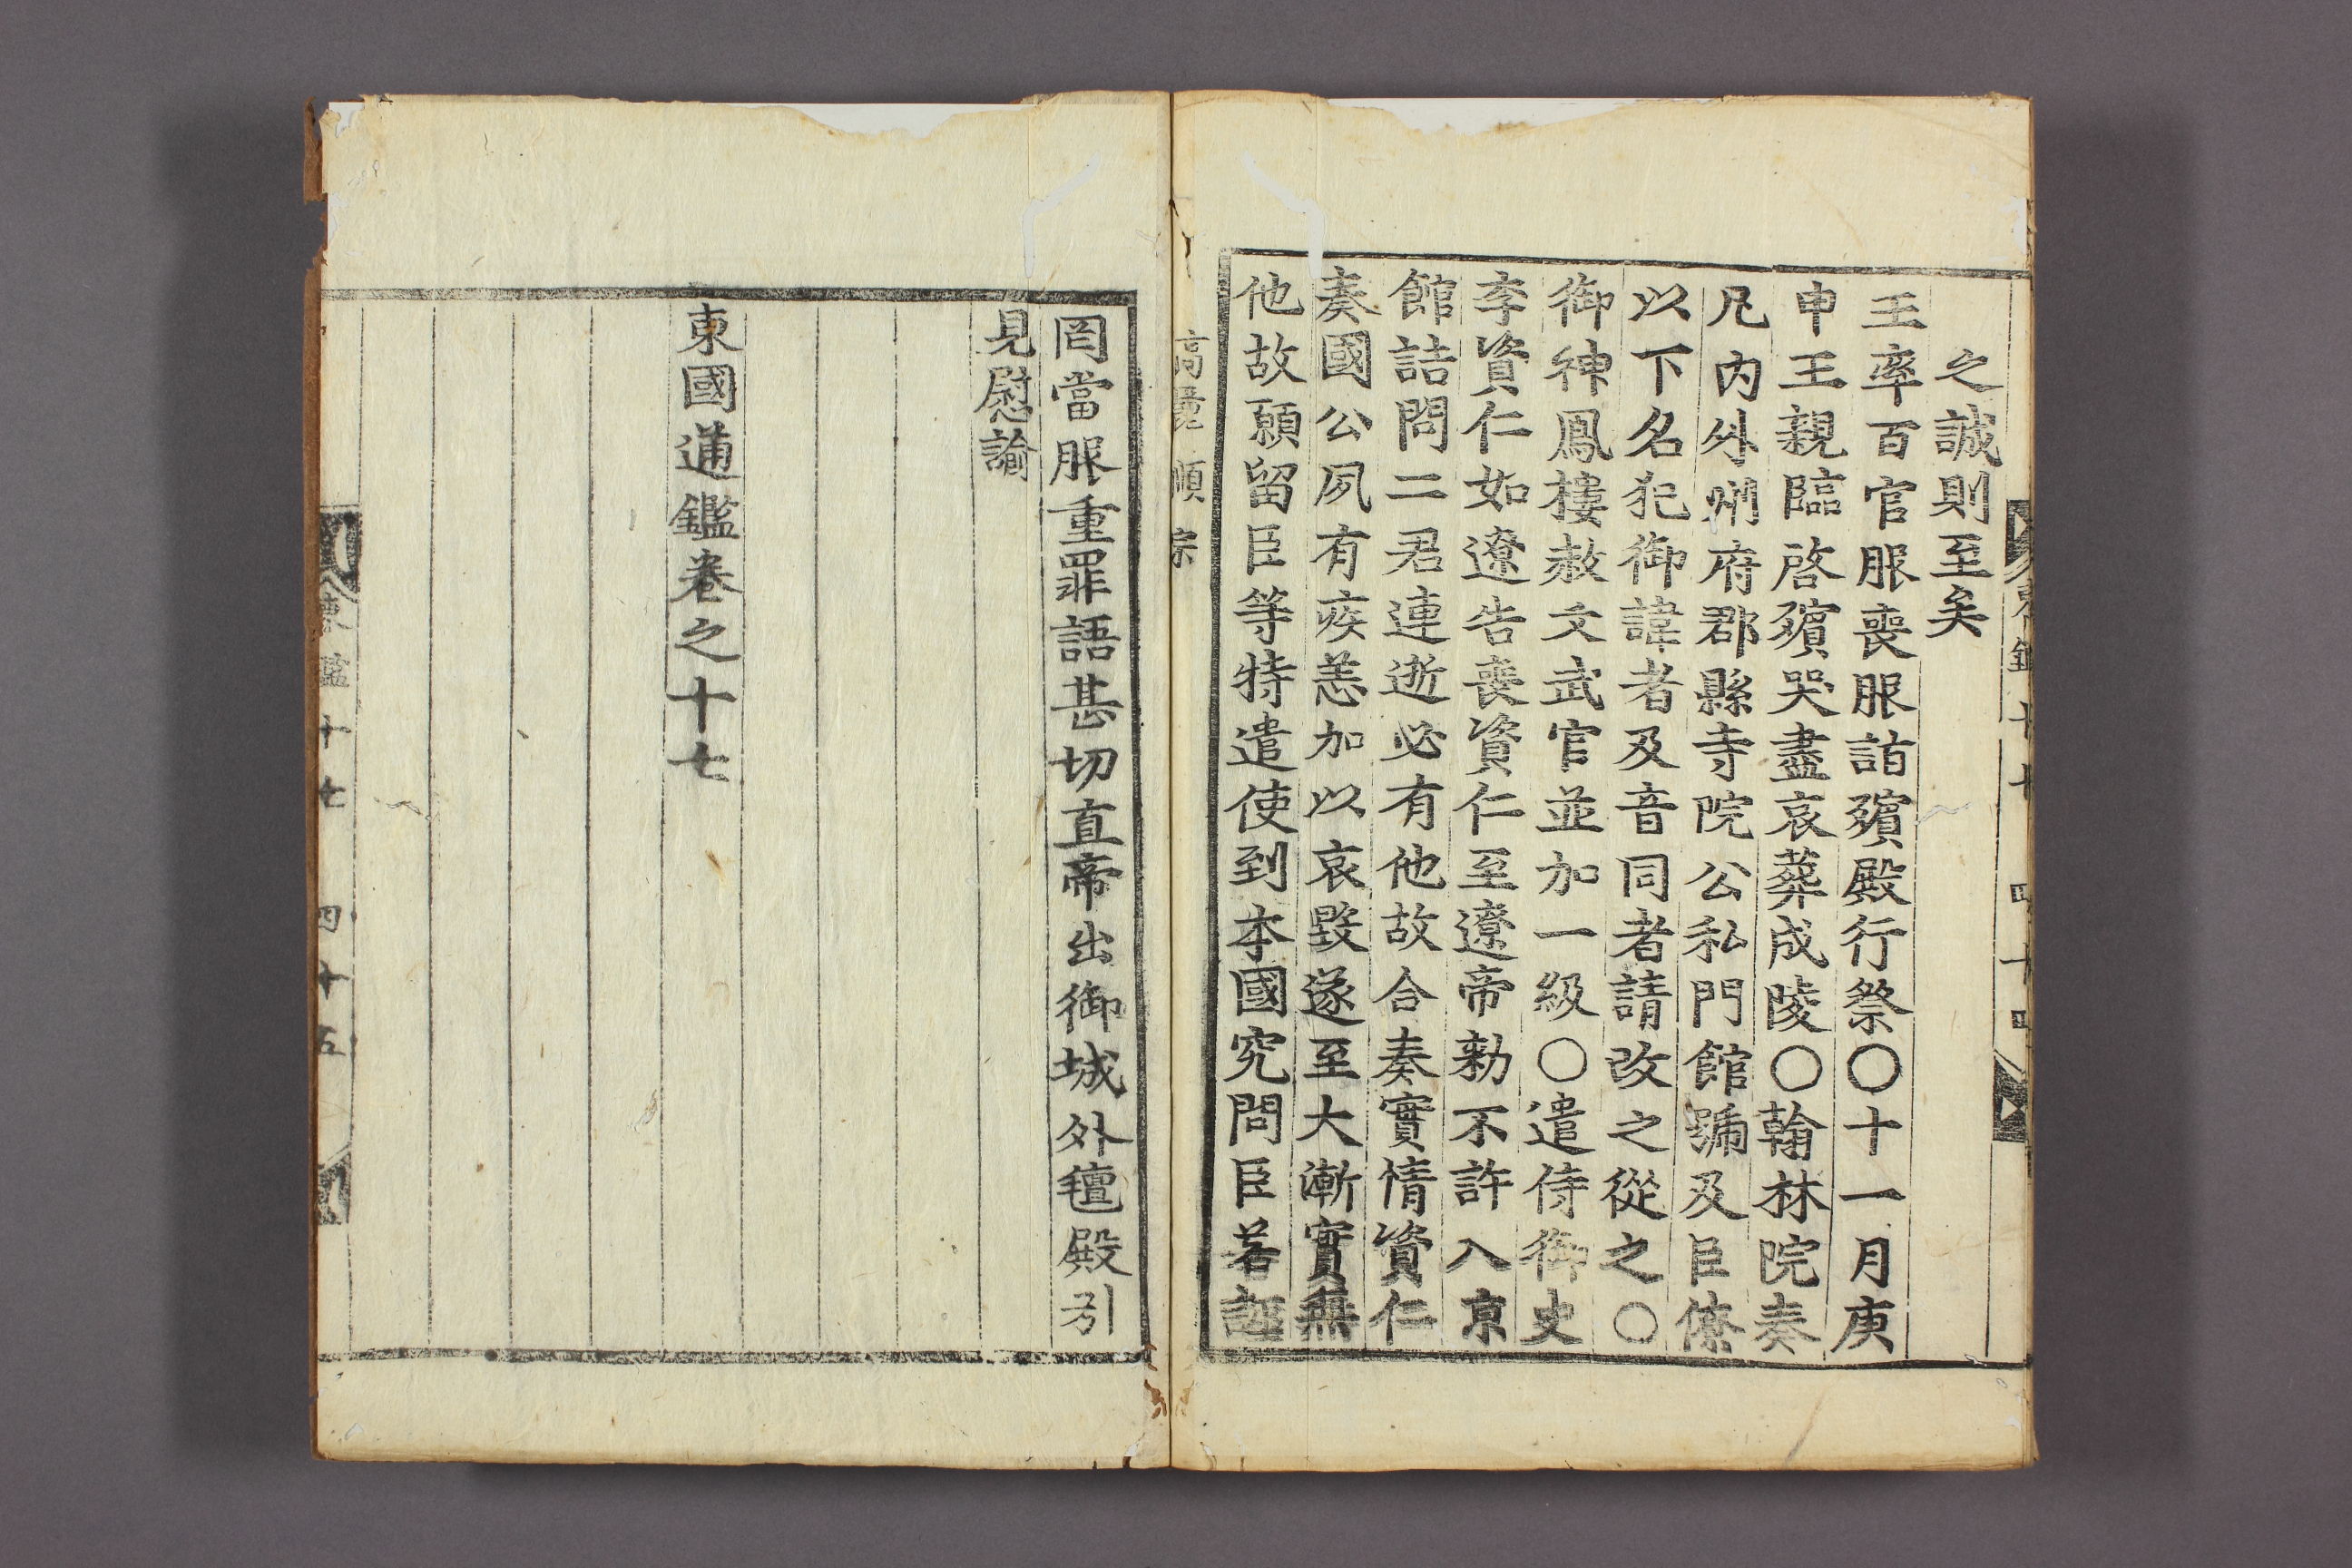 之誠則至矣
王率百官服喪服詣殯殿行祭○十一月庚
申王親臨啓殯哭盡哀葬成陵○翰林院奏
凡內外州府郡縣寺院公私門館號及臣僚
以下名犯御諱者及音同者請改之從之○
御神鳳樓赦文武官並加一級○遣侍御史
李資仁如遼告喪資仁至遼帝勑不許入京
館詰問二君連逝必有他故合奏實情資仁
奏國公夙有疾恙加以哀毀遂至大漸實無
他故願留臣等特遣使到本國究問臣若誣
高麗 順宗
罔當服重罪語甚切直帝出御城外氊殿引
見慰諭
東國通鑑卷之十七
東鑑十七 四十五